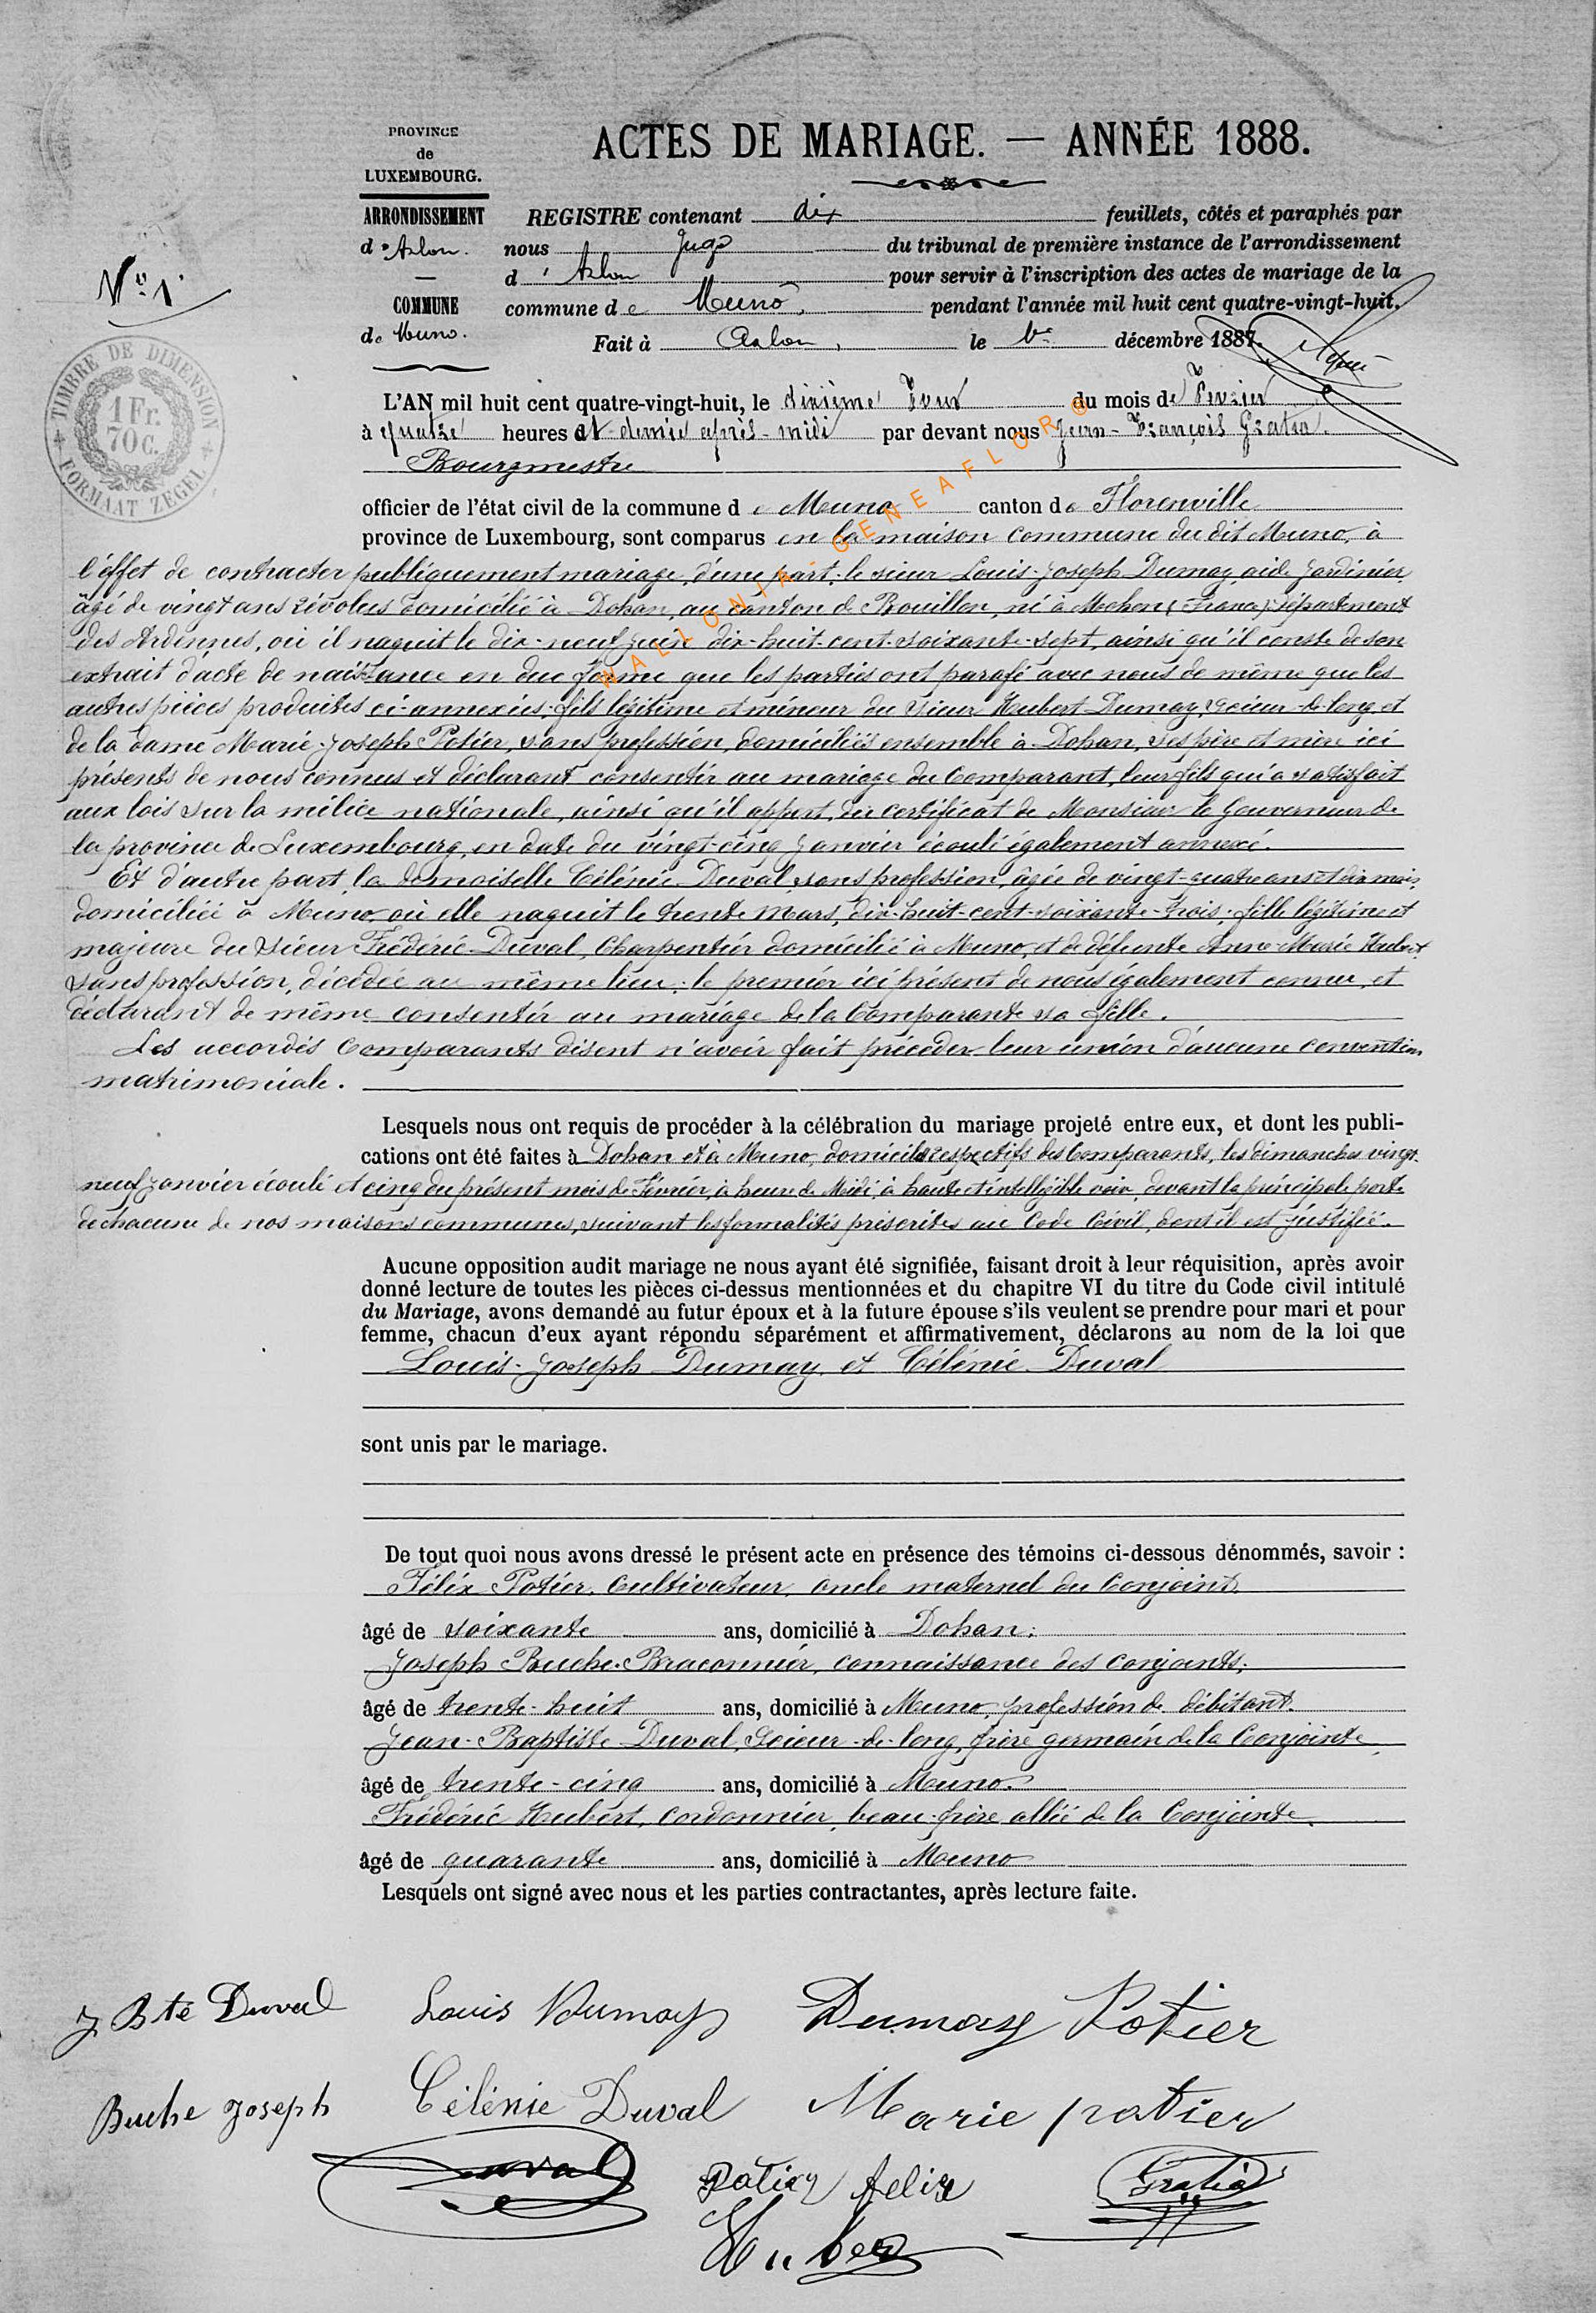 PROVINCE
de
LUXEMBOURG.
ARRONDISSEMENT
d'Arlon.
—
COMMUNE
de Muno.
ACTES DE MARIAGE. — ANNÉE 1888.
REGISTRE contenant dix feuillets, côtés et paraphés par
nous Juge du tribunal de première instance de l'arrondissement
d'Arlon pour servir à l'inscription des actes de mariage de la
commune de Muno, pendant l'année mil huit cent quatre-vingt-huit.
Fait à Arlon, le décembre 1887.
N° 1
TIMBRE DE DIMENSION
1 Fr.
70 C.
FORMAAT ZEGEL
L'AN mil huit cent quatre-vingt-huit, le dixième Jour du mois de Février
à quatre heures et demie après-midi par devant nous Jean-François Gratia.
Bourgmestre
officier de l'état civil de la commune de Muno canton de Florenville
province de Luxembourg, sont comparus en la maison commune du dit Muno, à
l'éffet de contracter publiquement mariage, d'une part: le sieur Louis-Joseph Dumay, aide jardinier,
âgé de vingt ans révolus domicilié à Dohan, au canton de Bouillon, né à (France) département
des Ardennes, où il naquit le dix-neuf juin dix-huit-cent-soixante-sept, ainsi qu'il conste de son
extrait d'acte de naissance en due forme que les parties ont parafé avec nous de même que les
autres pièces produites ci-annexées; fils légitime et mineur du sieur Hubert Dumay, scieur-de-long, et
de la dame Marie-Joseph Potier, sans profession, domiciliés ensemble à Dohan, ses père et mère ici
présents de nous connus et déclarant consentir au mariage du Comparant, leur fils qui a satisfait
aux lois sur la milice nationale, ainsi qu'il appert, du certificat de Monsieur le Gouverneur de
la province de Luxembourg, en date du vingt-cinq Janvier écoulé également annexé.
Et d'autre part, la demoiselle Célénie Duval, sans profession, âgée de vingt-quatre ans et dix mois,
domiciliée à Muno, où elle naquit le trente Mars, dix-huit-cent-soixante-trois; fille légitime et
majeure du sieur Frédéric Duval, Charpentier domicilié à Muno, et de défunte Anne-Marie Hubert
sans profession, décédée au même lieu; le premier ici présent de nous également connu, et
déclarant de même consentir au mariage de la Comparante sa fille.
Les accordés Comparants disent n'avoir fait précéder leur union d'aucune convention
matrimoniale.
Lesquels nous ont requis de procéder à la célébration du mariage projeté entre eux, et dont les publi-
cations ont été faites à Dohan et à Muno, domiciles respectifs des Comparants, les dimanches vingt-
neuf janvier écoulé et cinq du présent mois de Février, à heure de Midi, à haute et intelligible voix, devant la principale porte
de chacune de nos maisons communes, suivant les formalités prescrites au Code Civil, dont il est justifié.
Aucune opposition audit mariage ne nous ayant été signifiée, faisant droit à leur réquisition, après avoir
donné lecture de toutes les pièces ci-dessus mentionnées et du chapitre VI du titre du Code civil intitulé
du Mariage, avons demandé au futur époux et à la future épouse s'ils veulent se prendre pour mari et pour
femme, chacun d'eux ayant répondu séparément et affirmativement, déclarons au nom de la loi que
Louis-Joseph Dumay et Célénie Duval
sont unis par le mariage.
De tout quoi nous avons dressé le présent acte en présence des témoins ci-dessous dénommés, savoir :
Félix Potier, Cultivateur, oncle maternel du Conjoint
âgé de soixante ans, domicilié à Dohan;
Joseph Buche-Braconnier, connaissance des conjoints;
âgé de trente-huit ans, domicilié à Muno, profession de débitant.
Jean-Baptiste Duval, Scieur-de-long, frère germain de la Conjointe
âgé de trente-cinq ans, domicilié à Muno.
Frédéric Hubert, cordonnier, beau-frère allié de la Conjointe.
âgé de quarante ans, domicilié à Muno
Lesquels ont signé avec nous et les parties contractantes, après lecture faite.
J Bte Duval Louis Dumay Dumay Potier
Buche Joseph Célénie Duval Marie potier
Duval Potier felix Gratia
Hubert
WALLONIA-GENEAFLOR ®